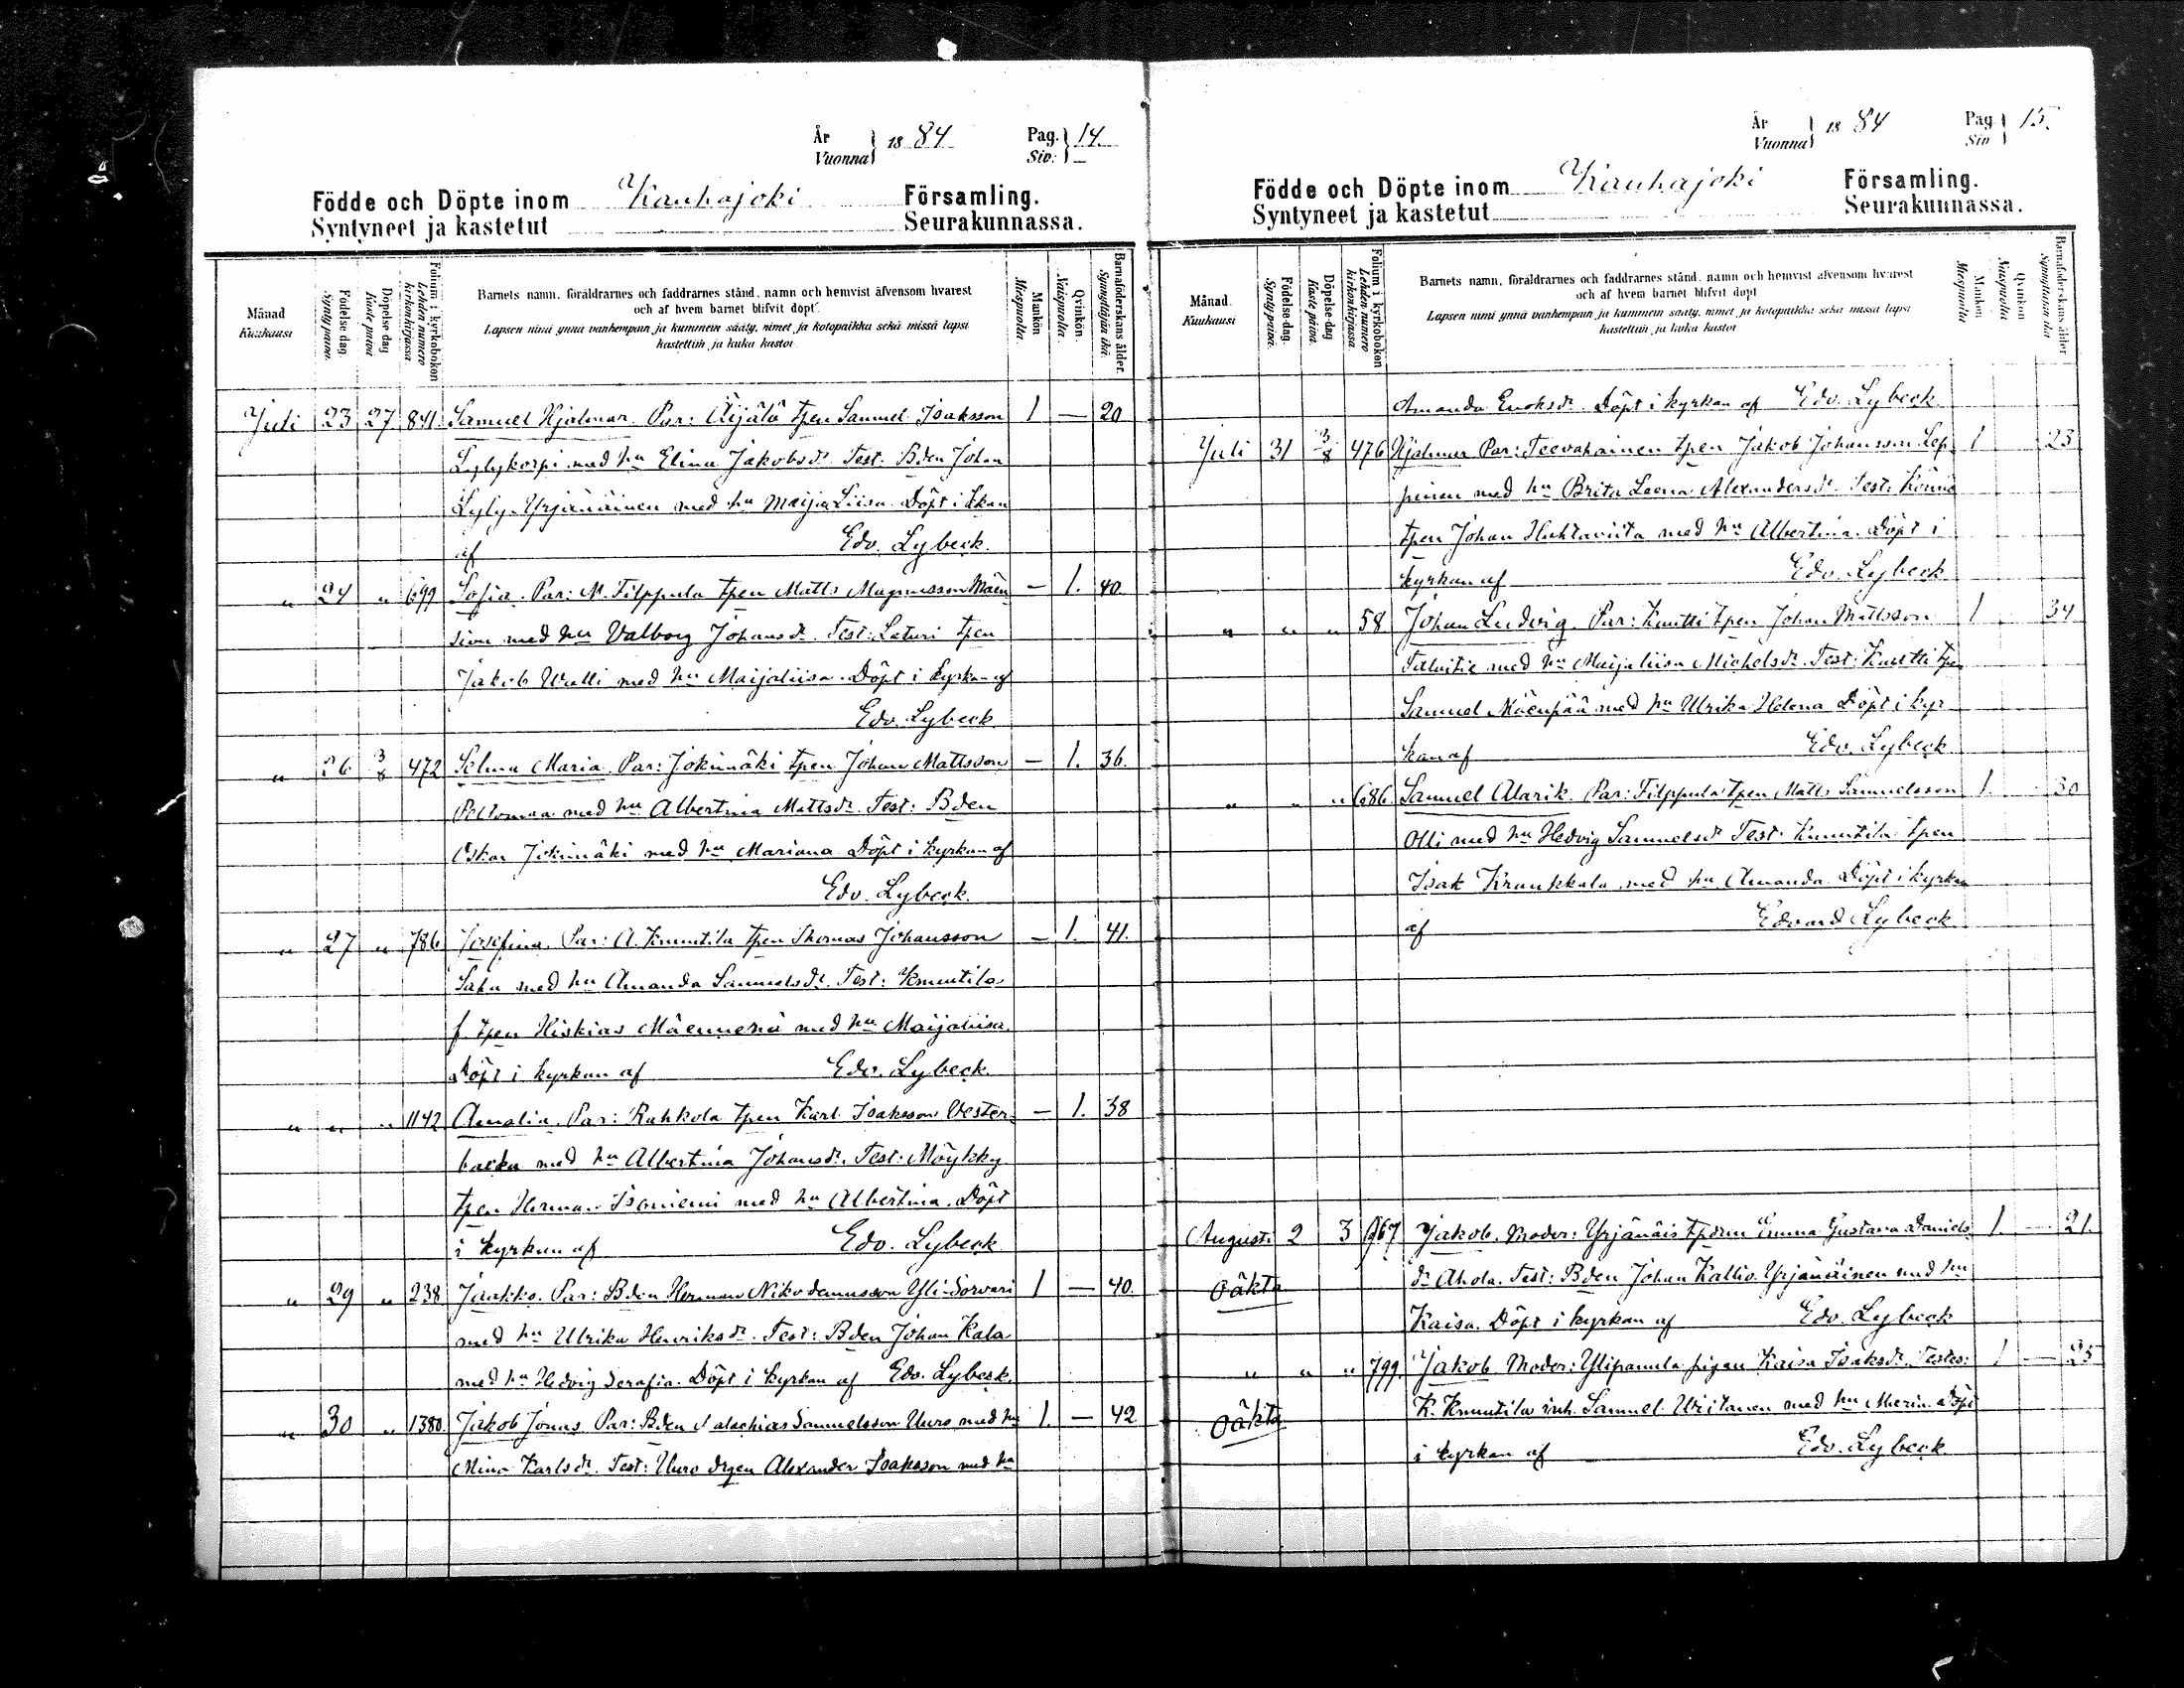 År
Vuonna } 18 84 Pag. } 14.
Siv:
Födde och Döpte inom Kauhajoki Församling.
Syntyneet ja kastetut Seurakunnassa.
Månad
Kuukausi
Födelse dag.
Synty päivä.
Döpelse dag
Kaste päivä
Folium i kyrkoboken
Lehden numero
kirkonkirjassa
Barnets namn, föräldrarnes och faddrarnes stånd, namn och hemvist äfvensom hvarest
och af hvem barnet blifvit döpt.
Lapsen nimi ynnä vanhempain ja kummein sääty, nimet ja kotopaikka sekä missä lapsi
kastettiin ja kuka kastoi
Mankön
Miespuolia.
Qvinkön.
Naispuolia.
Barnaföderskans ålder.
Synnyttäjän ikä.
Juli 23 27 841 Samuel Hjalmar. Par: Äijälä tpen Samuel Isaksson 1 — 20
Lylykorpi med hu Elina Jakobsdr. Test: Bden Johan
Lyly-Yrjänäinen med hu Maija Liisa. Döpt i kkan
af Edv. Lybeck.
" 24 " 699 Sofia. Par: N. Filppula tpen Matts Magnusson Mäen — 1. 40.
sivu med hu Valborg Johansdr. Test: Laturi tpen
Jakob Wulli med hu Maijaliisa. Döpt i kyrkan af
Edv. Lybeck
" 26 3/8 472 Selma Maria. Par: Jokimäki tpen Johan Mattsson — 1. 36.
Peltomaa med hu Albertina Mattsdr. Test: Bden
Oskar Jokimäki med hu Mariana. Döpt i kyrkan af
Edv. Lybeck.
" 27 " 786 Josefina. Par: A. Knuutila tpen Thomas Johansson — 1. 41.
med hu Amanda Samuelsdr. Test: Knuutila
f. tpen Hiskias Mäenmenä med hu Maijaliisa.
Döpt i kyrkan af Edv. Lybeck.
" " " 1142 Amalia. Par: Rahkola tpen Karl Isaksson Vester- — 1. 38
backa med hu Albertina Johansdr. Test: Möykky
tpen Herman Isoniemi med hu Albertina. Döpt
i kyrkan af Edv. Lybeck
" 29 " 238 Jaakko. Par: Bden Herman Nikodemusson Yli-Sorvari 1 — 40.
med hu Ulrika Henriksdr. Test: Bden Johan Kala
med hu Hedvig Serafia. Döpt i kyrkan af Edv. Lybeck.
" 30 " 1380. Jakob Jonas. Par: Bden Malachias Samuelsson Uuro med hu 1. — 42
Mina Karlsdr. Test: Uuro drgen Alexander Isaksson med hu
År
Vuonna } 18 84 Pag } 15.
Siv
Födde och Döpte inom Kauhajoki Församling.
Syntyneet ja kastetut Seurakunnassa.
Månad.
Kuukausi
Födelse-dag.
Synty päivä.
Döpelse-dag
Kaste päivä.
Folium i kyrkoboken
Lehden numero
kirkonkirjassa.
Barnets namn, föräldrarnes och faddrarnes stånd, namn och hemvist äfvensom hvarest
och af hvem barnet blifvit döpt
Lapsen nimi ynnä vanhempain ja kummein sääty, nimet ja kotopaikka sekä missä lapsi
kastettiin ja kuka kastoi
Mankön.
Miespuolia
Qvinkön
Naispuolia.
Barnaföderskans ålder
Synnyttäjän ikä
Amanda Enoksdr. Döpt i kyrkan af Edv. Lybeck
Juli 31 3/8 476 Hjalmar Par: Teevahainen tpen Jakob Johansson Lep- 1 23
pinen med hu Brita Leena Alexandersdr. Test: Könnö
tpen Johan Huhtaviita med hu Albertina. Döpt i
kyrkan af Edv. Lybeck
" " " 58 Johan Ludvig. Par: Knutti tpen Johan Mattsson 1 34
med hu Maijaliisa Michelsdr. Test: Knutti tpen
Samuel Mäenpää med hu Ulrika Helena Döpt i kyr
kan af Edv. Lybeck
" " " 686 Samuel Alarik. Par: Filppula tpen Matts Samuelsson 1. 30
Olli med hu Hedvig Samuelsdr Test: Knuutila tpen
Isak Krunkkala med hu Amanda. Döpt i kyrkan
af Edvard Lybeck
August. 2 3 967 Jakob. Moder: Yrjänäis tpdrn Emma Gustava Daniels- 1 — 21.
oäkta dr Ahola. Test: Bden Johan Kallio-Yrjänäinen med hu
Kaisa. Döpt i kyrkan af Edv. Lybeck
" " " 799. Jakob. Moder: Ylipanula pigan Kaisa Isaksdr. Testes: 1 — 25
oäkta K. Knuutila inh. Samuel Wiitanen med hu Maria. Döpt
i kyrkan af Edv. Lybeck